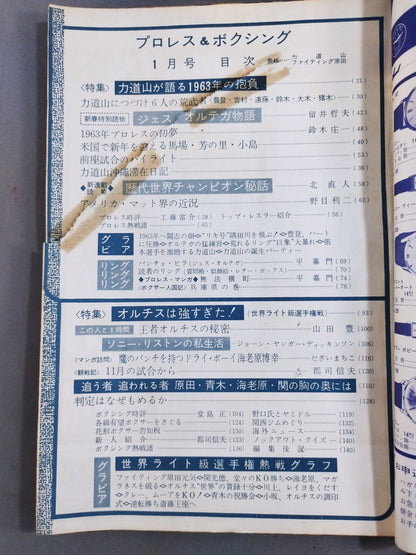 プロレス＆ボクシング
1月号 目次
表紙 力道山
ファイティング原田
〈特集〉力道山が語る1963年の抱負 (21)
力道山につづけ6人の荒武者(豊登・吉村・遠藤・鈴木・大木・猪木) (30)
新春特別読物 ジェス・オルテガ物語 留井哲夫 (42)
1963年プロレスの初夢 鈴木庄一 (48)
米国で新年を迎える馬場・芳の里・小島 (40)
前座試合のハイライト (53)
力道山沖縄滞在日記 (36)
新連載読物 歴代世界チャンピオン秘話 北直人 (58)
アメリカ・マット界の近況 野目利二 (62)
プロレス時評 工藤雷介(28) トップ・レスラー紹介 (56)
プロレス熱戦譜 (65)
グラビア
1963年へ闘志の顔◇“リキ号”隅田川を飛ぶ!◇豊登、ハート
に圧勝◇オルテガの猛練習◇荒れるリング“巨象”大暴れ◇張
本選手を激励する力道山◇力道山の誕生パーティー
リングリング
パンチョ・ピラ(ジェス・オルテガ) 平嘉門 (69)
読者のリング(質問箱・似顔絵・レター・ボックス) (70)
◆プロレス・マンガ◆無法横町 平嘉門 (74)
〈ボクサー人国記〉兵庫県の巻 (76)
〈特集〉オルチスは強すぎた! (世界ライト級選手権) (93)
この人と1時間 王者オルチスの秘密 山田豊 (100)
ソニー・リストンの私生活 ジョーン・ヤンガー・ディッキンソン (106)
〈マンガ訪問〉魔のパンチを持つドライ・ボーイ海老原博幸 だざいまさこ (116)
〈観戦記〉11月の試合から 郡司信夫 (130)
追う者 追われる者 原田・青木・海老原・関の胸の奥には (110)
判定はなぜもめるか (128)
ボクシング時評 堂島正 (104)
各級有望ボクサーをさぐる (124)
花形ボクサー告知板 (138)
新人紹介 郡司信夫 (133)
ボクシング熱戦譜 (136)
野口氏とヤミドル (119)
関西ジムめぐり (132)
海外ニュース (134)
ノックアウト・クイズ (140)
編集後記 (140)
グラビア 世界ライト級選手権熱戦グラフ
ファイティング原田元気◇関光徳、堂々のKO勝ち◇海老原、マガ
ラネスを破る◇オルチス“世界”の貫録十分◇川上、レイヨをくだす
◇クレー、ムーアをKO!◇青木の祝勝会◇小坂、オルチスの調印
式◇逆転勝ち斎藤王座へ